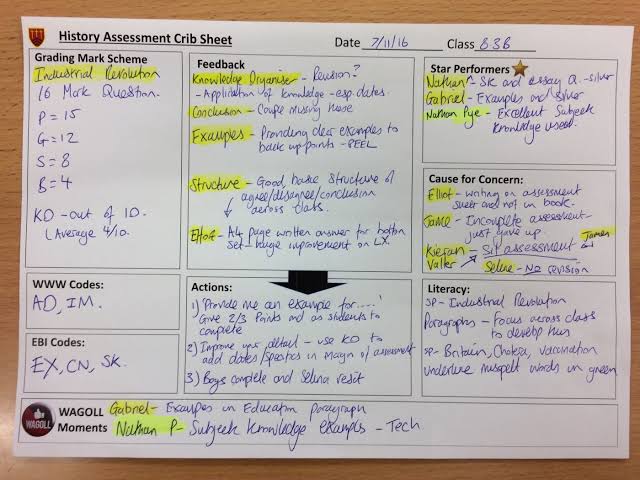 History Assessment Crib Sheet
Date 7/11/16 Class 83B
Grading Mark Scheme
Industrial Revolution
16 Mark Question.
P = 15
G = 12
S = 8
B = 4
KO - out of 10.
(Average 4/10)
WWW Codes:
AD, IM.
EBI Codes:
EX, CN, SK.
Feedback
Knowledge Organiser - Revision?
- Application of knowledge - esp dates.
Conclusion - Couple missing these
Examples - Providing clear examples to
back up points - PEEL
Structure - Good, basic structure of
agree/disagree/conclusion
across class.
Effort - A4 page written answer for bottom
set - huge improvement on LX.
Actions:
1) 'Provide me an example for.....'
Give 2/3 Points and students to
complete
2) Improve your detail - use KO to
add dates/specifics in margin of assessment
3) Boys complete and Selina resit
Star Performers
Nathan - SK and essay a. - silver
Gabriel - Examples and silver
Nathan Pye - Excellent Subject
knowledge used.
Cause for Concern:
Elliot - writing on assessment
sheet and not in book.
Jamie - Incomplete assessment -
just gave up.
Kieran - Sit assessment James
Valler
Selina - No revision
Literacy:
SP - Industrial Revolution
Paragraphs - Focus across class
to develop them
SP - Britain, Cholera, vaccination
underline mispelt words in green
WAGOLL
WAGOLL Moments
Gabriel - Examples in Education Paragraph
Nathan P - Subject knowledge examples - Tech